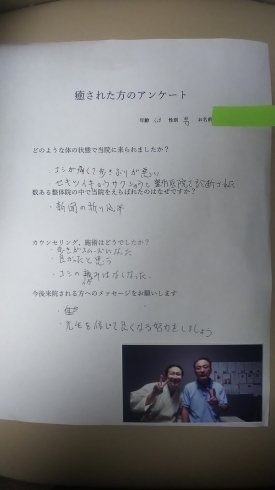 癒された方のアンケート
年齢 性別 男 お名前
どのような体の状態で当院に来られましたか？
・コシが痛くて歩きぶりが悪い
セキツイキョウサクショウと整形医院で診断された
数ある整体院の中で当院をえらばれたのはなぜですか？
・新聞の折り込み
カウンセリング、施術はどうでしたか？
・歩きがスムーズになった
・良かったと思う
・コシの痛みはなくなった
今後来院される方へのメッセージをお願いします
・先生を信じて良くなる努力をしましょう